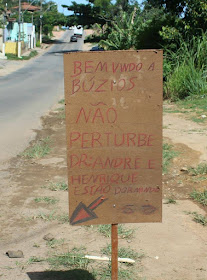 BEM VINDO A
BÚZIOS
NÃO
PERTURBE
DR ANDRE E
HENRIQUE
ESTÃO